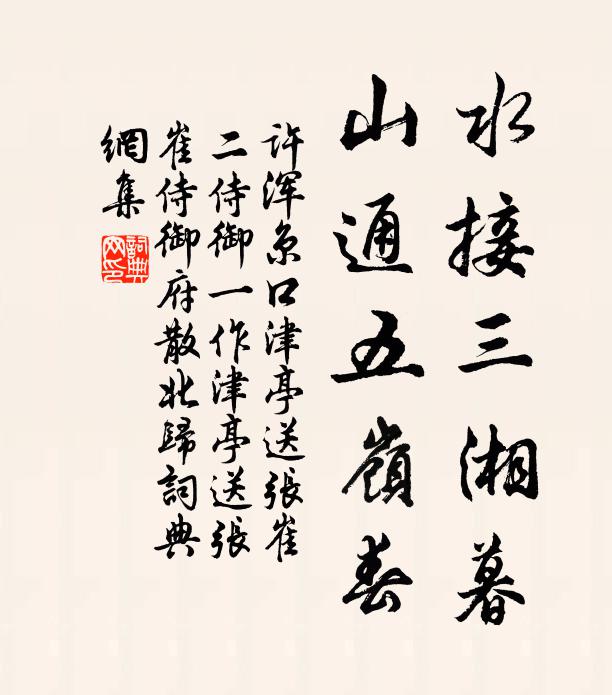 水接三湘暮
山通五嶺春
許渾京口津亭送張崔
二侍御一作津亭送張
崔侍御府散北歸詞典
網集
詞典網印